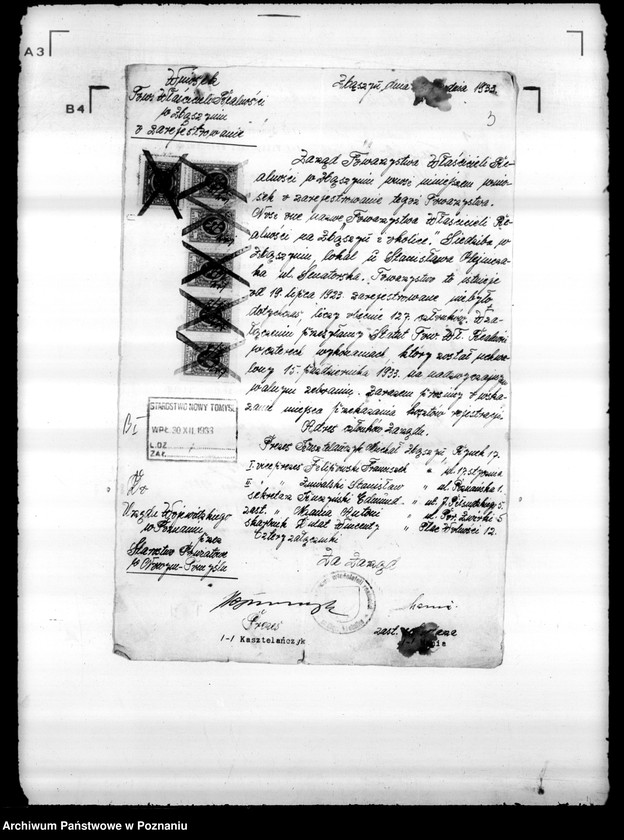 A3
B4
Wniosek
Tow. Właścicieli Realności
w Zbąszyniu
o zarejestrowanie
Zbąszyń, dnia grudnia 1933.
3
Zarząd Towarzystwa Właścicieli Re-
alności w Zbąszyniu wnosi niniejszem wnio-
sek o zarejestrowanie tegoż Towarzystwa.
Nosi ono nazwę "Towarzystwo Właścicieli Re-
alności na Zbąszyń i okolice." Siedziba w
Zbąszyniu, lokal u Stanisława
ul. Senatorska. Towarzystwo to istnieje
od 19. lipca 1923. zarejestrowane niebyło
dotychczas, liczy obecnie 127. członków. W za-
łączeniu przesyłamy Statut Tow. Wł. Realności
w czterech wykonaniach, który został uchwa-
lony 15. października 1933. na nadzwyczajnym
walnym zebraniu. Zarazem prosimy o wska-
zanie miejsca przekazania kosztów rejestracji.
Adres członków Zarządu.
Prezes Kasztelańczyk Michał Zbąszyń Rynek 17.
I. viceprezes Filipowski Franciszek " ul. 17. stycznia
II. " Stanisław " ul. Poznańska 1.
sekretarz Edmund " ul. J. Piłsudskiego 5.
zast. " Antoni " ul. Por. Żwirki 5
skarbnik Wincenty " Plac Wolności 12.
Cztery załączniki
STAROSTWO NOWY TOMYŚL
WPŁ. 30 XII. 1933
L.DZ.
ZAŁ.
Do
Urzędu Wojewódzkiego
w Poznaniu
przez
Starostwo Powiatowe
w Nowym-Tomyślu
Za Zarząd
Prezes
/-/ Kasztelańczyk
zast.
Archiwum Państwowe w Poznaniu